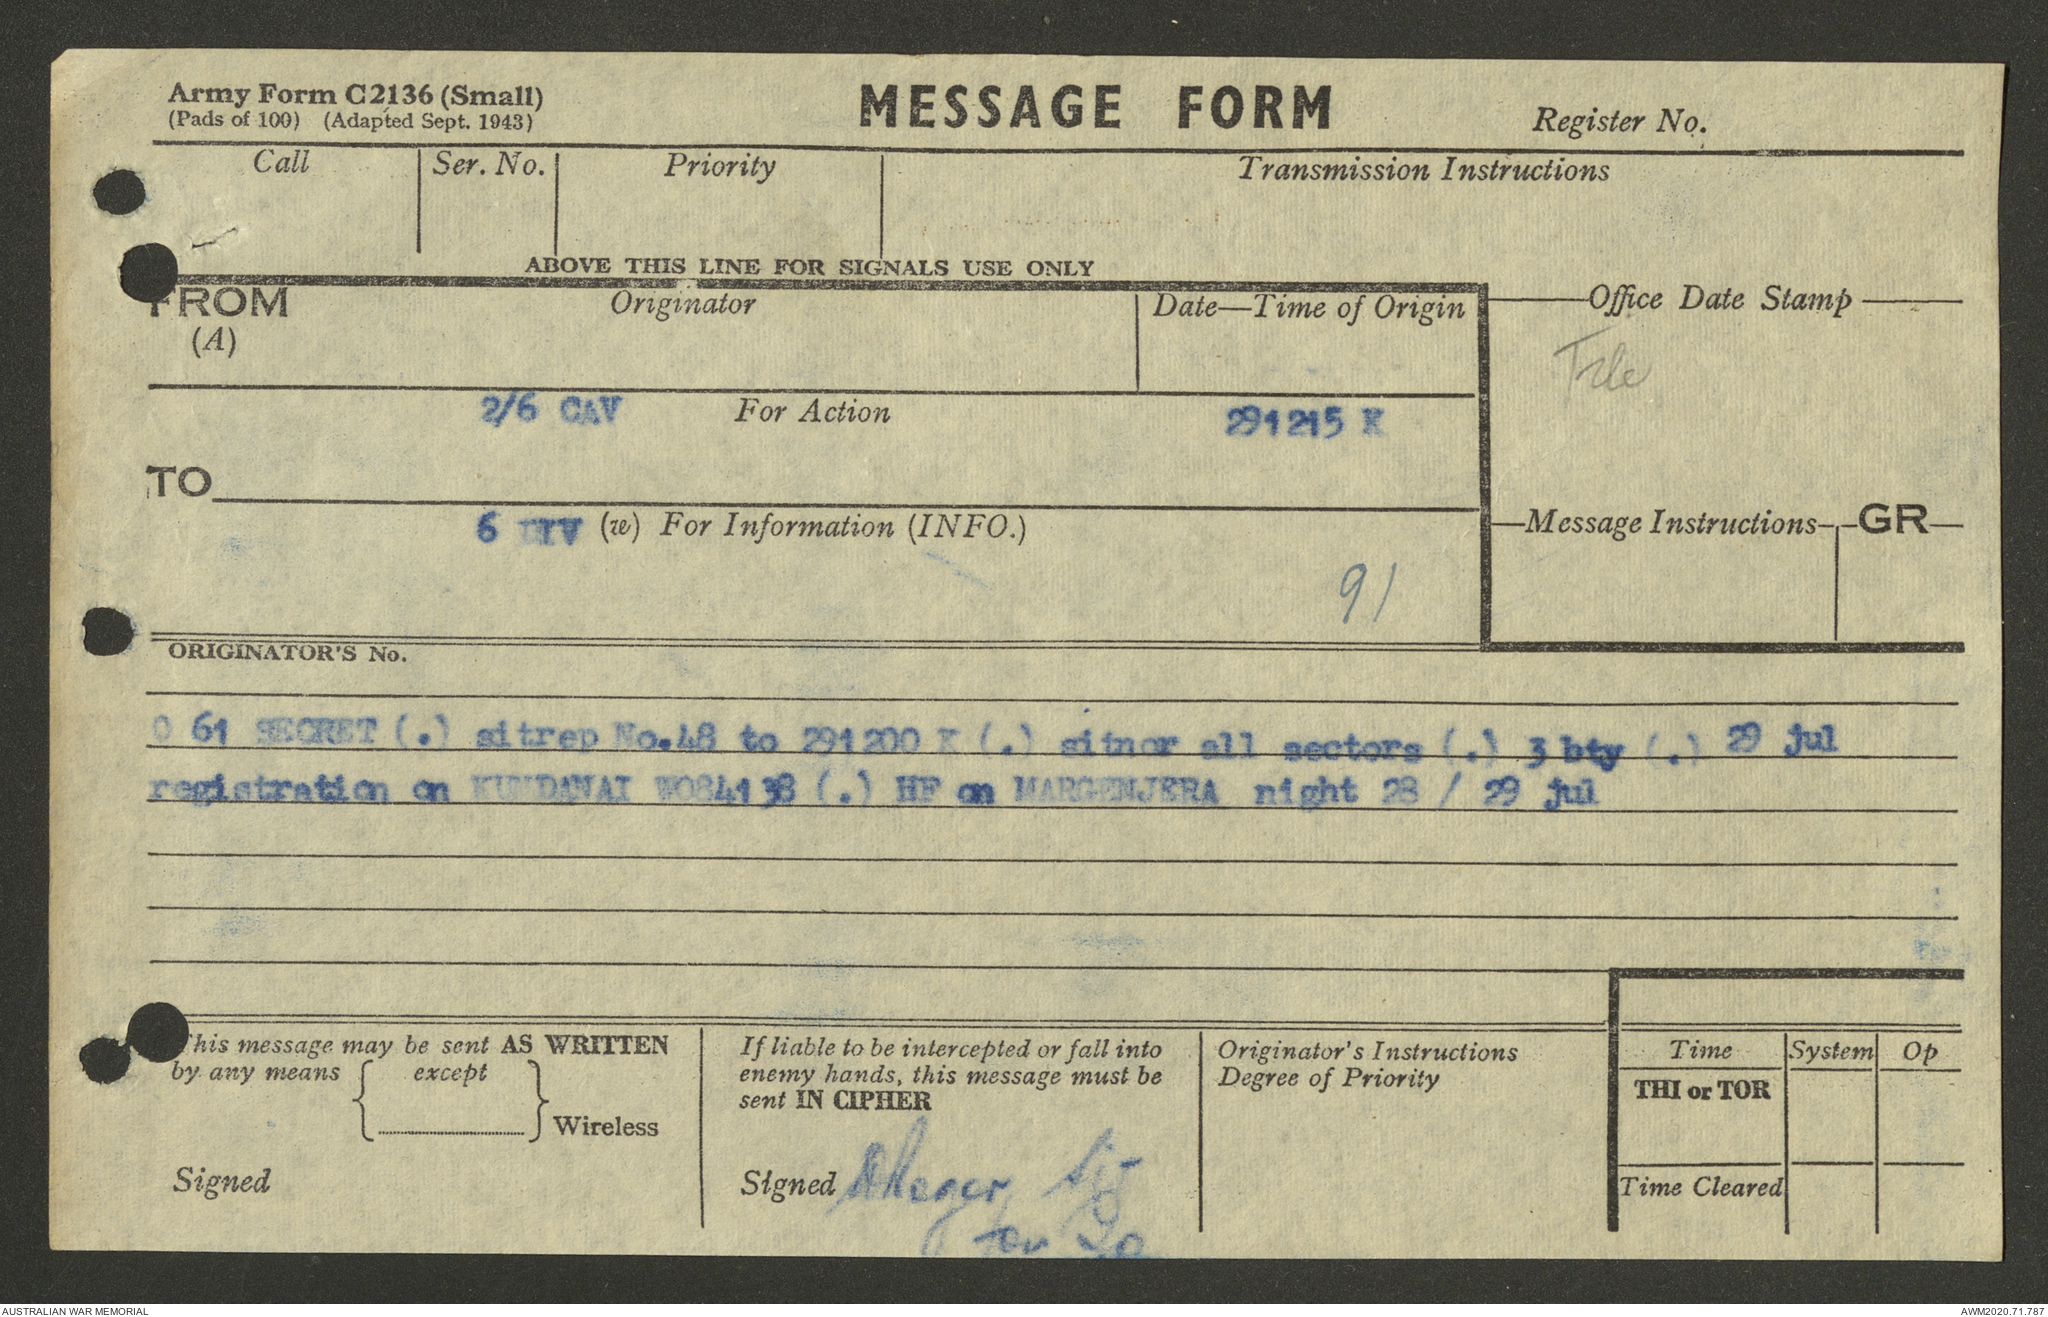 Army Form C2136 (Small)
(Pads of 100) (Adapted Sept. 1943)
MESSAGE FORM
Register No.
Call
Ser. No.
Priority
Transmission Instructions
ABOVE THIS LINE FOR SIGNALS USE ONLY
FROM
(A)
Originator
Date—Time of Origin
Office Date Stamp
2/6 CAV
For Action
291215 K
TO
6 DIV
(w) For Information (INFO.)
Message Instructions
GR
91
ORIGINATOR'S No.
O 61 SECRET (.) sitrep No.48 to 291200 K (.) sitnor all sectors (.) 3 bty (.) 29 jul
registration on KUMDAWAI WO84138 (.) HF on MARGENJERA night 28 / 29 jul
This message may be sent AS WRITTEN
by any means except
Wireless
Signed
If liable to be intercepted or fall into
enemy hands, this message must be
sent IN CIPHER
Signed
Originator's Instructions
Degree of Priority
Time
System
Op
THI or TOR
Time Cleared
AUSTRALIAN WAR MEMORIAL
AWM2020.71.787